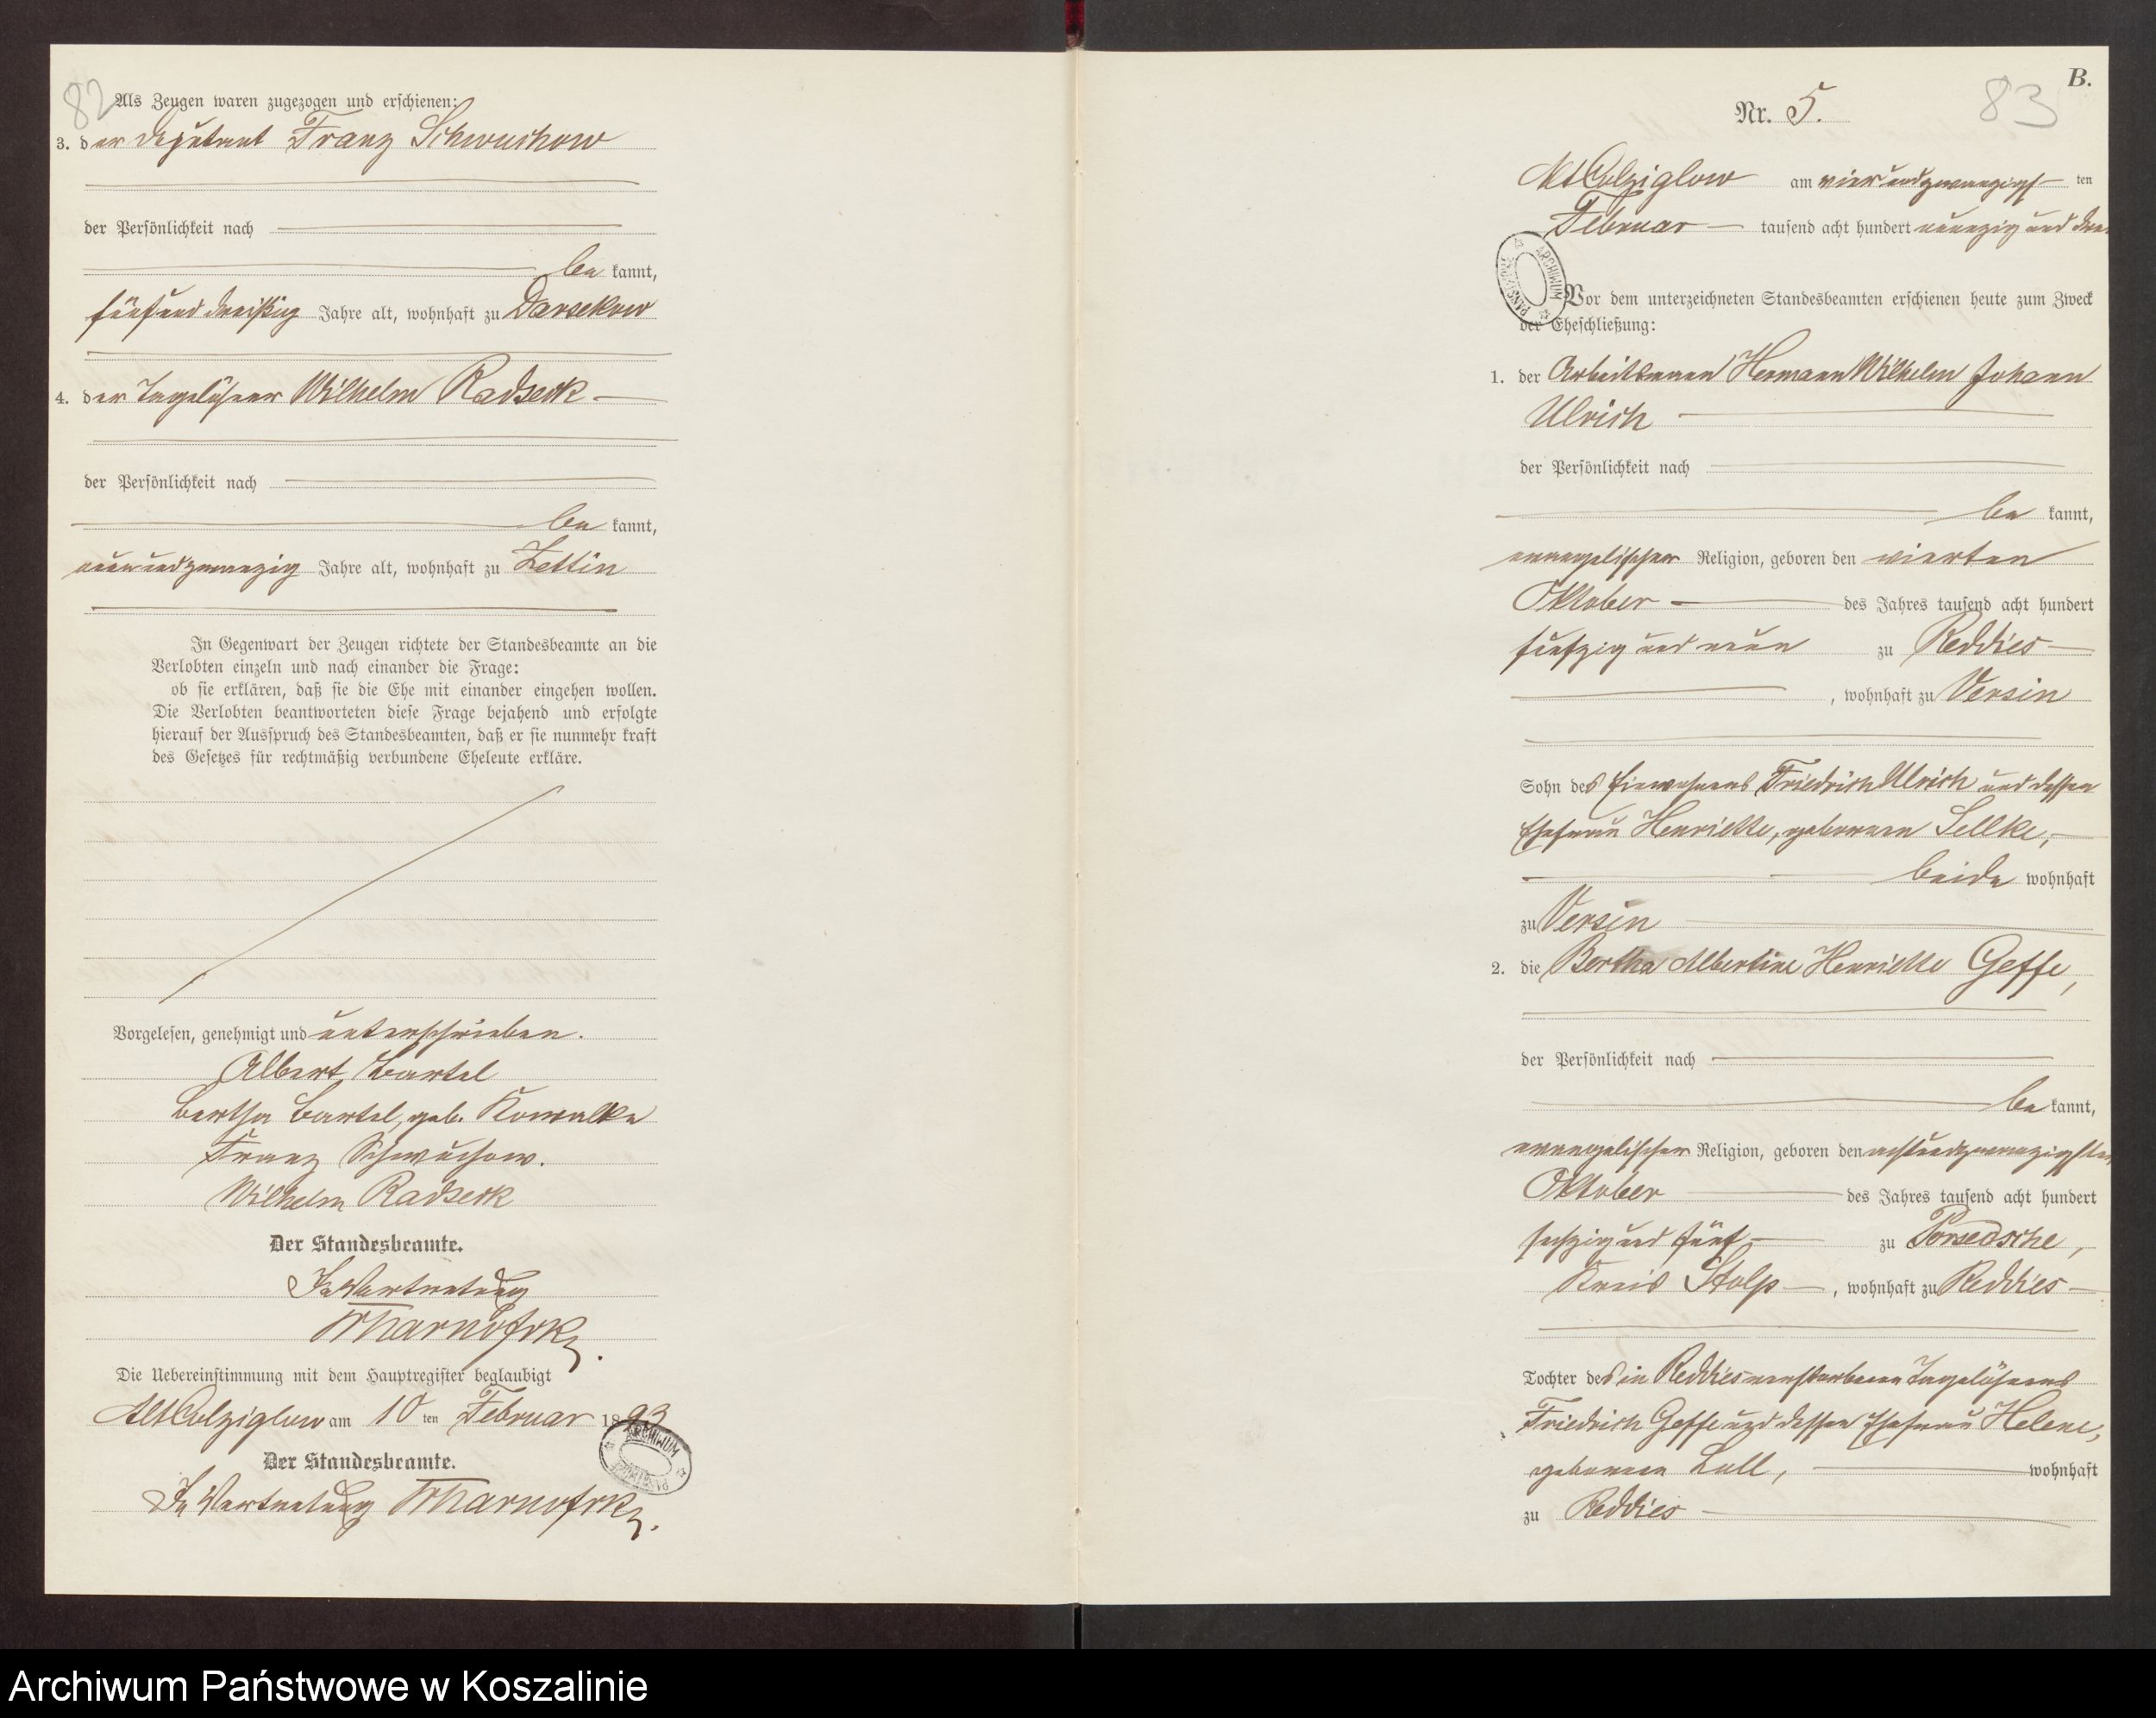 82
Als Zeugen waren zugezogen und erschienen:
3. der Deputant Franz Schwuchow
der Persönlichkeit nach
bekannt,
fünfunddreißig Jahre alt, wohnhaft zu Darsekow
4. der Tagelöhner Wilhelm Radseck
der Persönlichkeit nach
bekannt,
neunundzwanzig Jahre alt, wohnhaft zu Zettin
In Gegenwart der Zeugen richtete der Standesbeamte an die
Verlobten einzeln und nach einander die Frage:
ob sie erklären, daß sie die Ehe mit einander eingehen wollen.
Die Verlobten beantworteten diese Frage bejahend und erfolgte
hierauf der Ausspruch des Standesbeamten, daß er sie nunmehr kraft
des Gesetzes für rechtmäßig verbundene Eheleute erkläre.
Vorgelesen, genehmigt und unterschrieben.
Albert Bartel
Bertha Bartel, geb. Kowalke
Franz Schwuchow.
Wilhelm Radseck
Der Standesbeamte.
In Vertretung
Die Uebereinstimmung mit dem Hauptregister beglaubigt
Alt Colziglow am 10ten Februar 1893
Der Standesbeamte.
In Vertretung
ARCHIWUM PAŃSTWOWE
B.
83
Nr. 5.
Alt Colziglow am vierundzwanzigsten
Februar tausend acht hundert neunzig und drei
ARCHIWUM PAŃSTWOWE
Vor dem unterzeichneten Standesbeamten erschienen heute zum Zweck
der Eheschließung:
1. der Arbeitsmann Hermann Wilhelm Johann
Ulrich
der Persönlichkeit nach
bekannt,
evangelischer Religion, geboren den vierten
Oktober des Jahres tausend acht hundert
fünfzig und neun zu Reddies
, wohnhaft zu Versin
Sohn des Einwohners Friedrich Ulrich und dessen
Ehefrau Henriette, geborenen Sellke,
beide wohnhaft
zu Versin
2. die Bertha Albertine Henriette Geffe,
der Persönlichkeit nach
bekannt,
evangelischer Religion, geboren den achtundzwanzigsten
Oktober des Jahres tausend acht hundert
sechzig und fünf zu Ponsedsche,
Kreis Stolp, wohnhaft zu Reddies
Tochter des in Reddies verstorbenen Tagelöhners
Friedrich Geffe und dessen Ehefrau Helene,
geborenen Lull, wohnhaft
zu Reddies
Archiwum Państwowe w Koszalinie